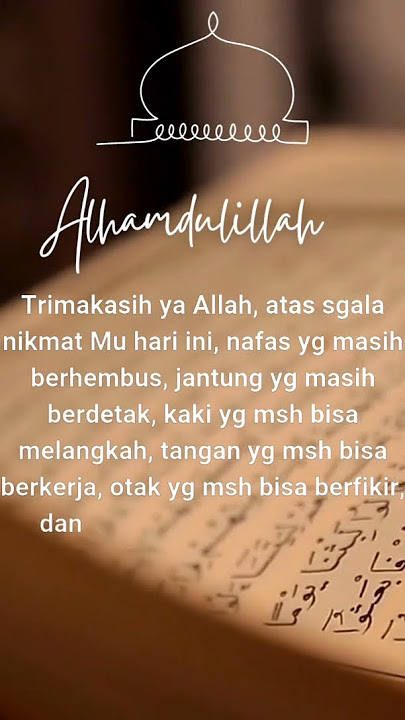 Alhamdulillah
Trimakasih ya Allah, atas sgala
nikmat Mu hari ini, nafas yg masih
berhembus, jantung yg masih
berdetak, kaki yg msh bisa
melangkah, tangan yg msh bisa
berkerja, otak yg msh bisa berfikir,
dan